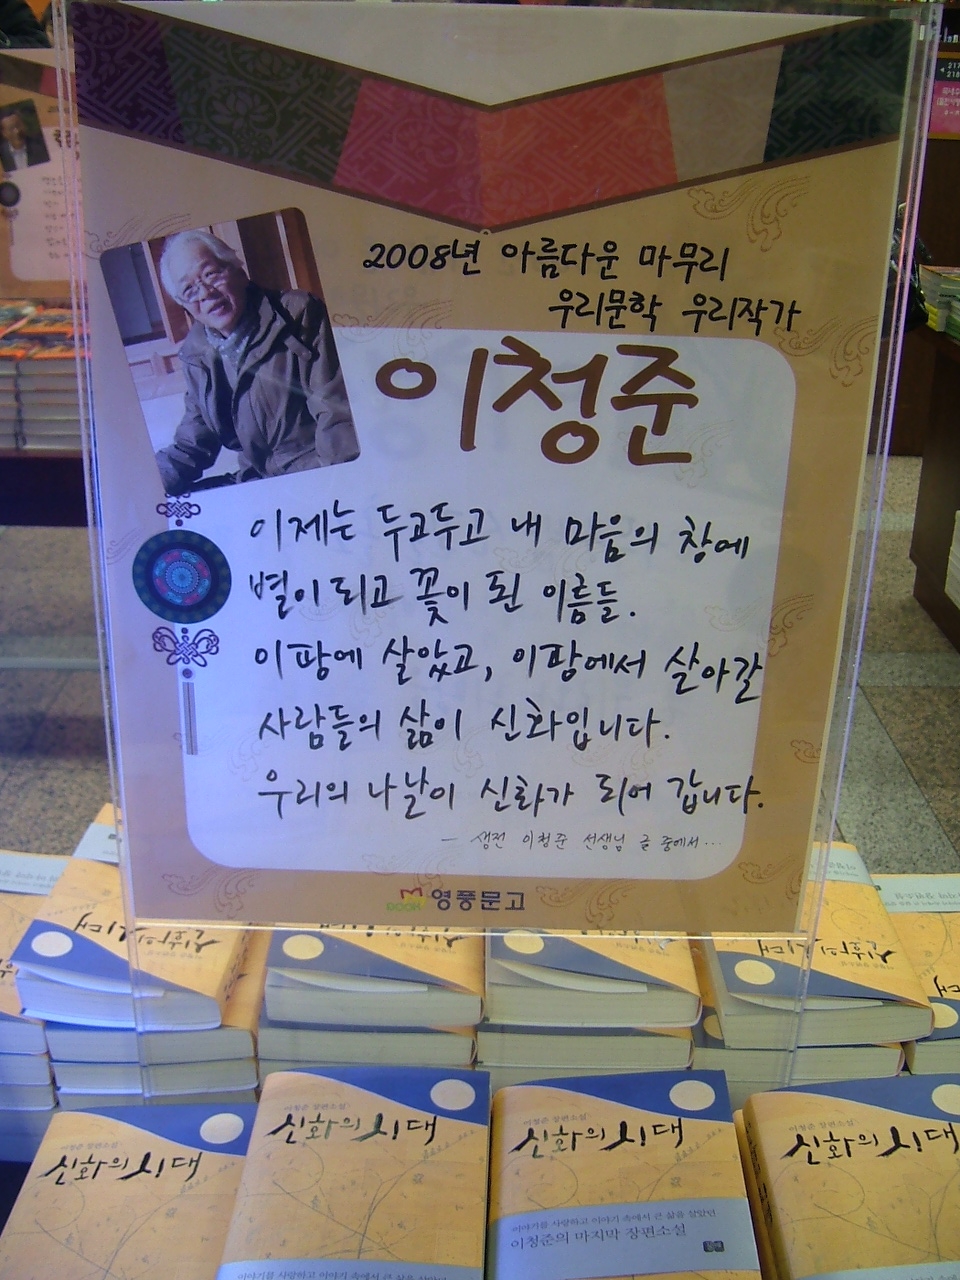 2008년 아름다운 마무리
우리문학 우리작가
이청준
이제는 두고두고 내 마음의 창에
별이 되고 꽃이 된 이름들.
이 땅에 살았고, 이 땅에서 살아갈
사람들의 삶이 신화입니다.
우리의 나날이 신화가 되어 갑니다.
- 생전 이청준 선생님 글 중에서...
영풍문고
신화의 시대
이청준 장편소설
신화의 시대
이청준 장편소설
신화의 시대
이청준 장편소설
신화의 시대
이야기를 사랑하고 이야기 속에서 큰 삶을 살았던
이청준의 마지막 장편소설
이청준 장편소설
신화의 시대
이야기를 사랑하고 이야기 속에서 큰 삶을 살았던